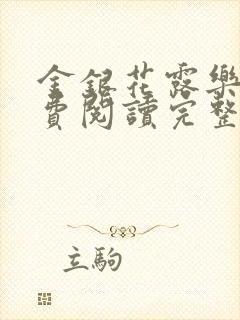 金銀花露樂
費閱讀完整
立駒